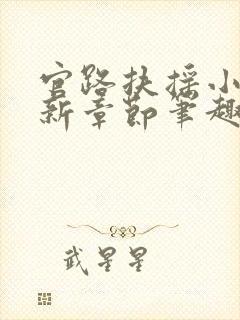 官路扶摇小
新章节笔趣
武星星